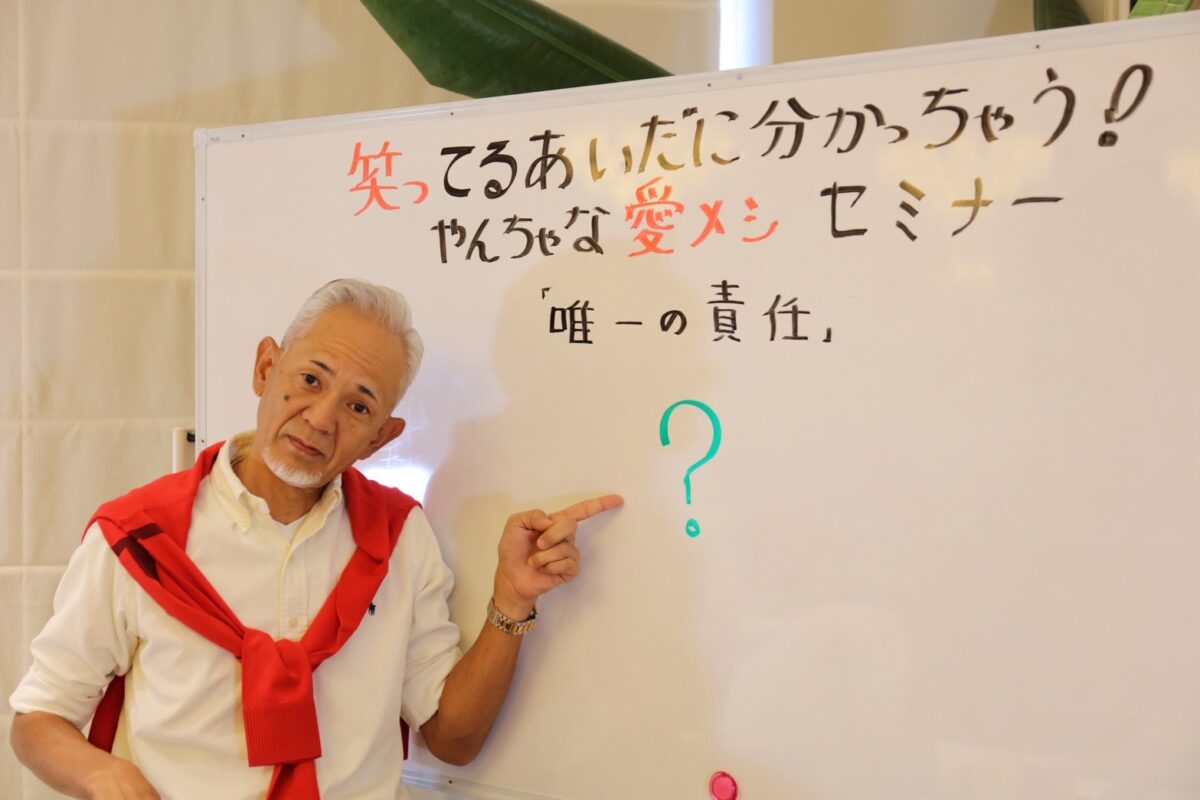 笑ってるあいだに分かっちゃう!
やんちゃな愛メシ セミナー
「唯一の責任」
?